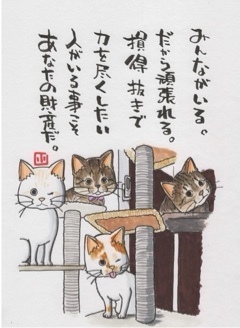 みんながいる。
だから頑張れる。
損得抜きで
力を尽くしたい
人がいる事こそ
あなたの財産だ。